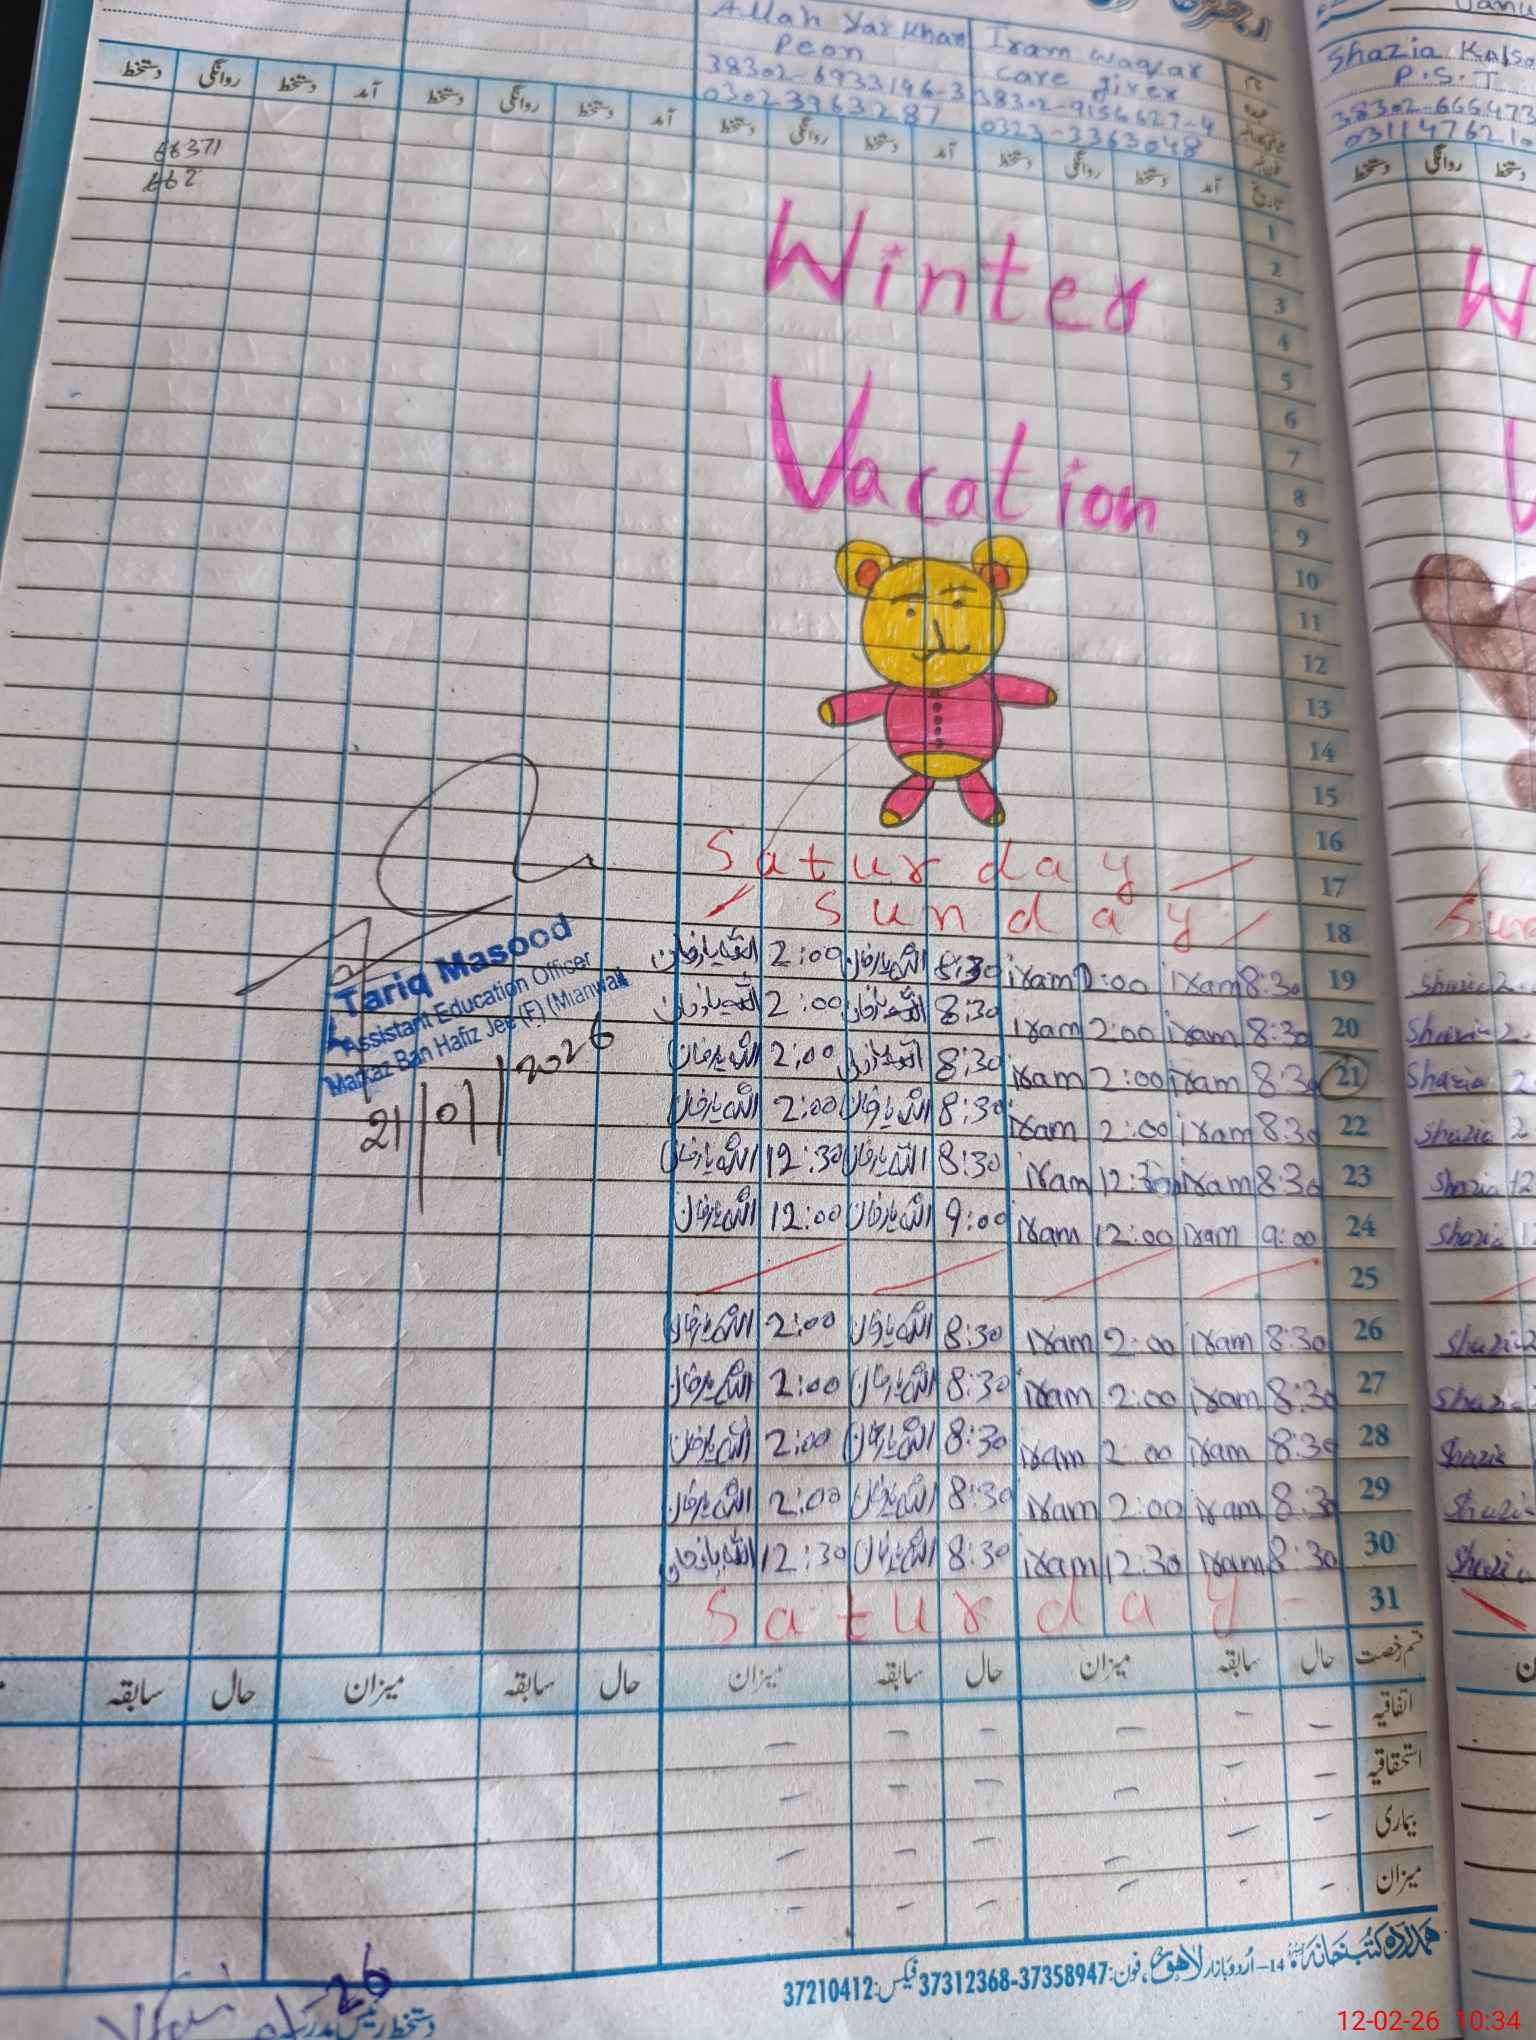 Allah Yar Khan
Peon
38302-6933196-3
03023963287
Iram waqar
care giver
38302-9156627-4
0323-3363048
Shazia Kalso
P.S.T
38302-665473
0311476210
دستخط روانگی دستخط آمد دستخط روانگی دستخط آمد دستخط روانگی دستخط آمد دستخط روانگی دستخط آمد تاریخ
دستخط روانگی دستخط
66371
662
Winter
Vacation
1
2
3
4
5
6
7
8
9
10
11
12
13
14
15
16
Saturday 17
Sunday 18
اللہ یار خان 2:00 اللہ یار خان 8:30 iram 2:00 iram 8:30 19 Shazia 2
اللہ یار خان 2:00 اللہ یار خان 8:30 iram 2:00 iram 8:30 20 Shazia 2
اللہ یار خان 2:00 اللہ یار خان 8:30 iram 2:00 iram 8:30 21 Shazia 2
اللہ یار خان 2:00 اللہ یار خان 8:30 iram 2:00 iram 8:30 22 Shazia 2
اللہ یار خان 12:30 اللہ یار خان 8:30 iram 12:30 iram 8:30 23 Shazia 12
اللہ یار خان 12:00 اللہ یار خان 9:00 iram 12:00 iram 9:00 24 Shazia 1
25
اللہ یار خان 2:00 اللہ یار خان 8:30 iram 2:00 iram 8:30 26 Shazia
اللہ یار خان 2:00 اللہ یار خان 8:30 iram 2:00 iram 8:30 27 Shazia
اللہ یار خان 2:00 اللہ یار خان 8:30 iram 2:00 iram 8:30 28 Shazia
اللہ یار خان 2:00 اللہ یار خان 8:30 iram 2:00 iram 8:30 29 Shazia
اللہ یار خان 12:30 اللہ یار خان 8:30 iram 12:30 iram 8:30 30 Shazia
Saturday 31
Tariq Masood
Assistant Education Officer
Markaz Ban Hafiz Jee (F) (Mianwali
21/01/2026
قسم رخصت حال سابقہ میزان حال سابقہ میزان حال سابقہ میزان حال سابقہ
اتفاقیہ
استحقاقیہ
بیماری
میزان
ہمدرد کتب خانہ 14-اُردو بازار لاہور، فون: 37358947-37312368 فیکس: 37210412
26
12-02-26 10:34